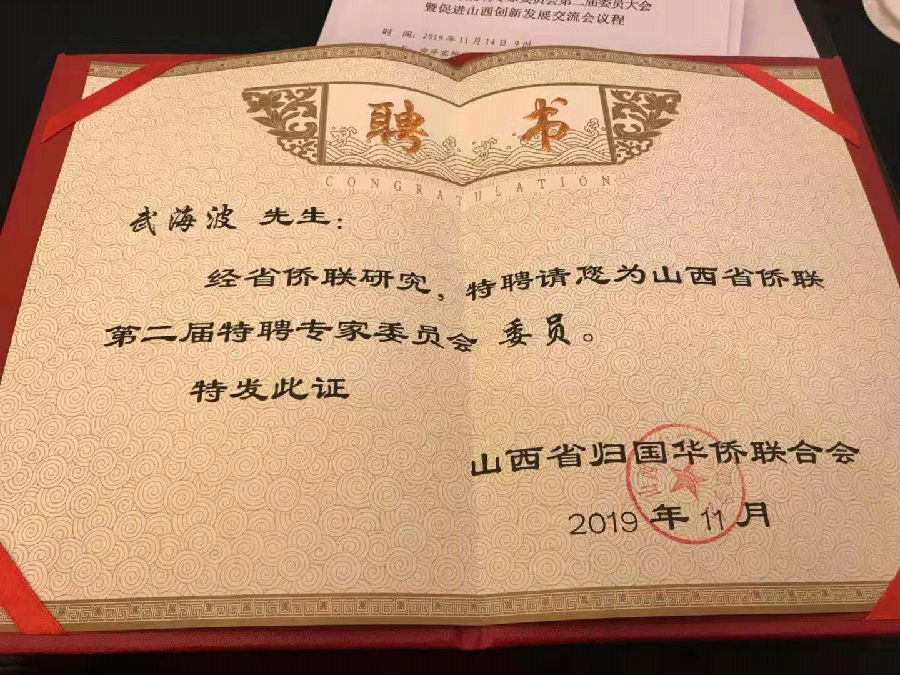 专家委员会第二届委员大会
暨促进山西创新发展交流会议程
时 间：2019年11月14日 9时
聘书
CONGRATULATION
武海波 先生：
经省侨联研究，特聘请您为山西省侨联
第二届特聘专家委员会 委员。
特发此证
山西省归国华侨联合会
2019 年 11 月